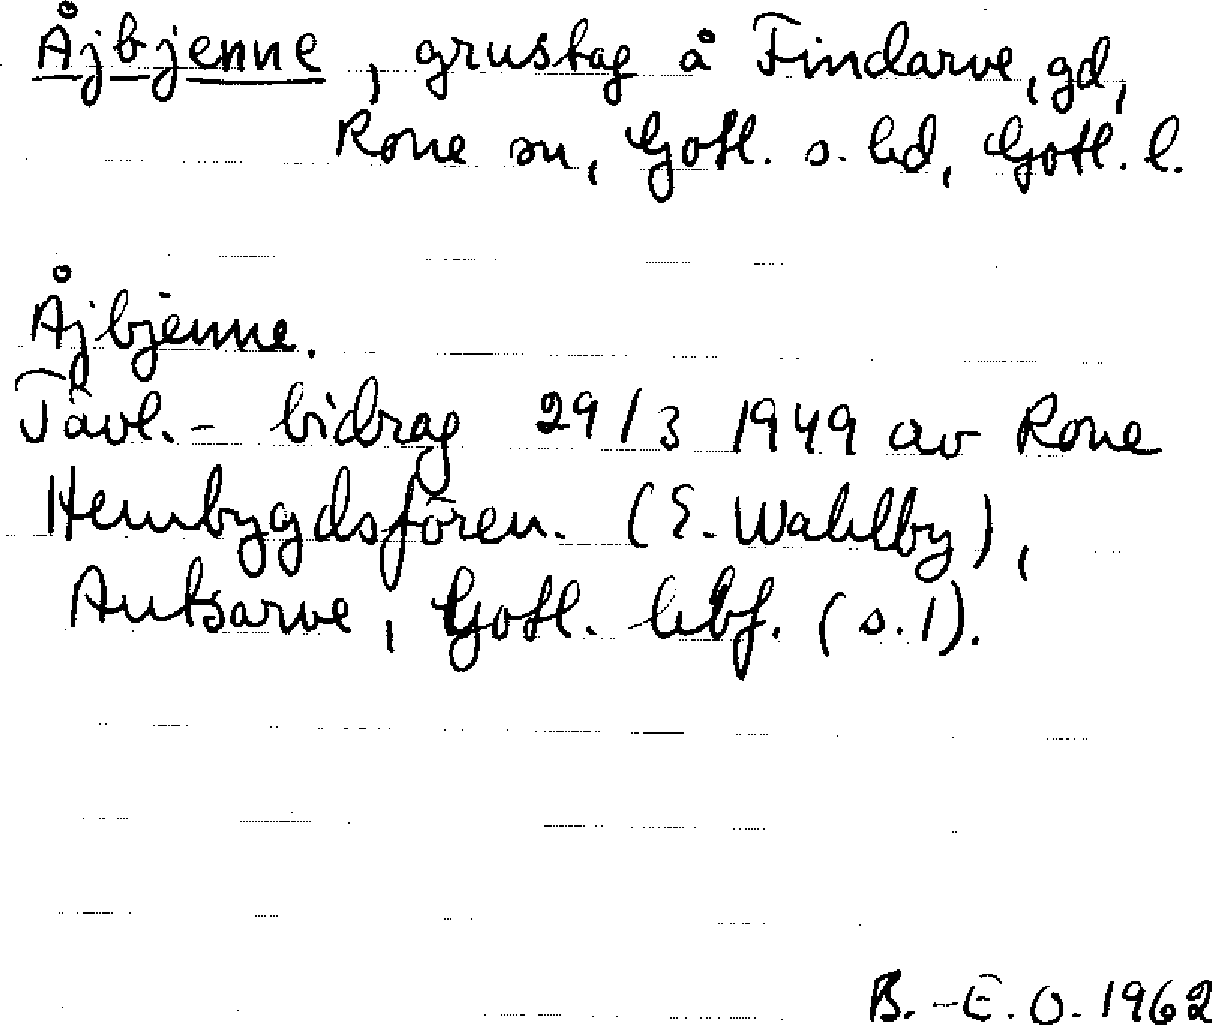 Åjbjenne, grustag å Findarve, gd,
Rone sn, Gotl. s. hd, Gotl. l.
Åjbjenne.
Tävl.- bidrag 29/3 1949 av Rone
Hembygdsfören. (E. Wahlby),
Autsarve, Gotl. hbf. (s.1).
B.-E.O. 1962